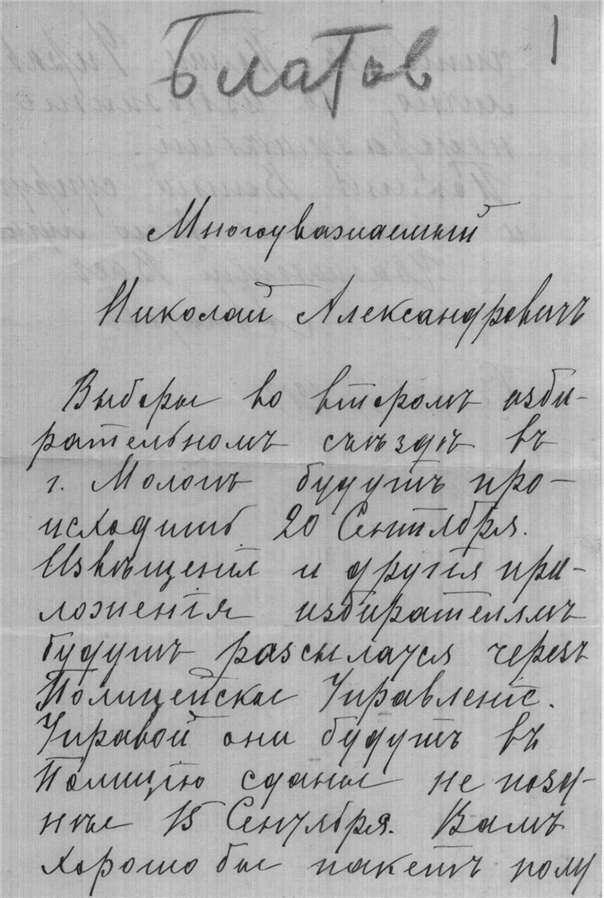 Блатов
1
Многоуважаемый
Николай Александровичъ
Выборы во второмъ изби-
рательномъ съѣздѣ въ
г. Мологѣ будутъ про-
исходить 20 Сентября.
Извѣщенія и другія при-
ложенія избирателямъ
будутъ разсылатся черезъ
Полицейское Управленіе.
Управой они будутъ въ
Полицію сданы не позд-
нѣе 15 Сентября. Вамъ
хорошо бы пакетъ полу